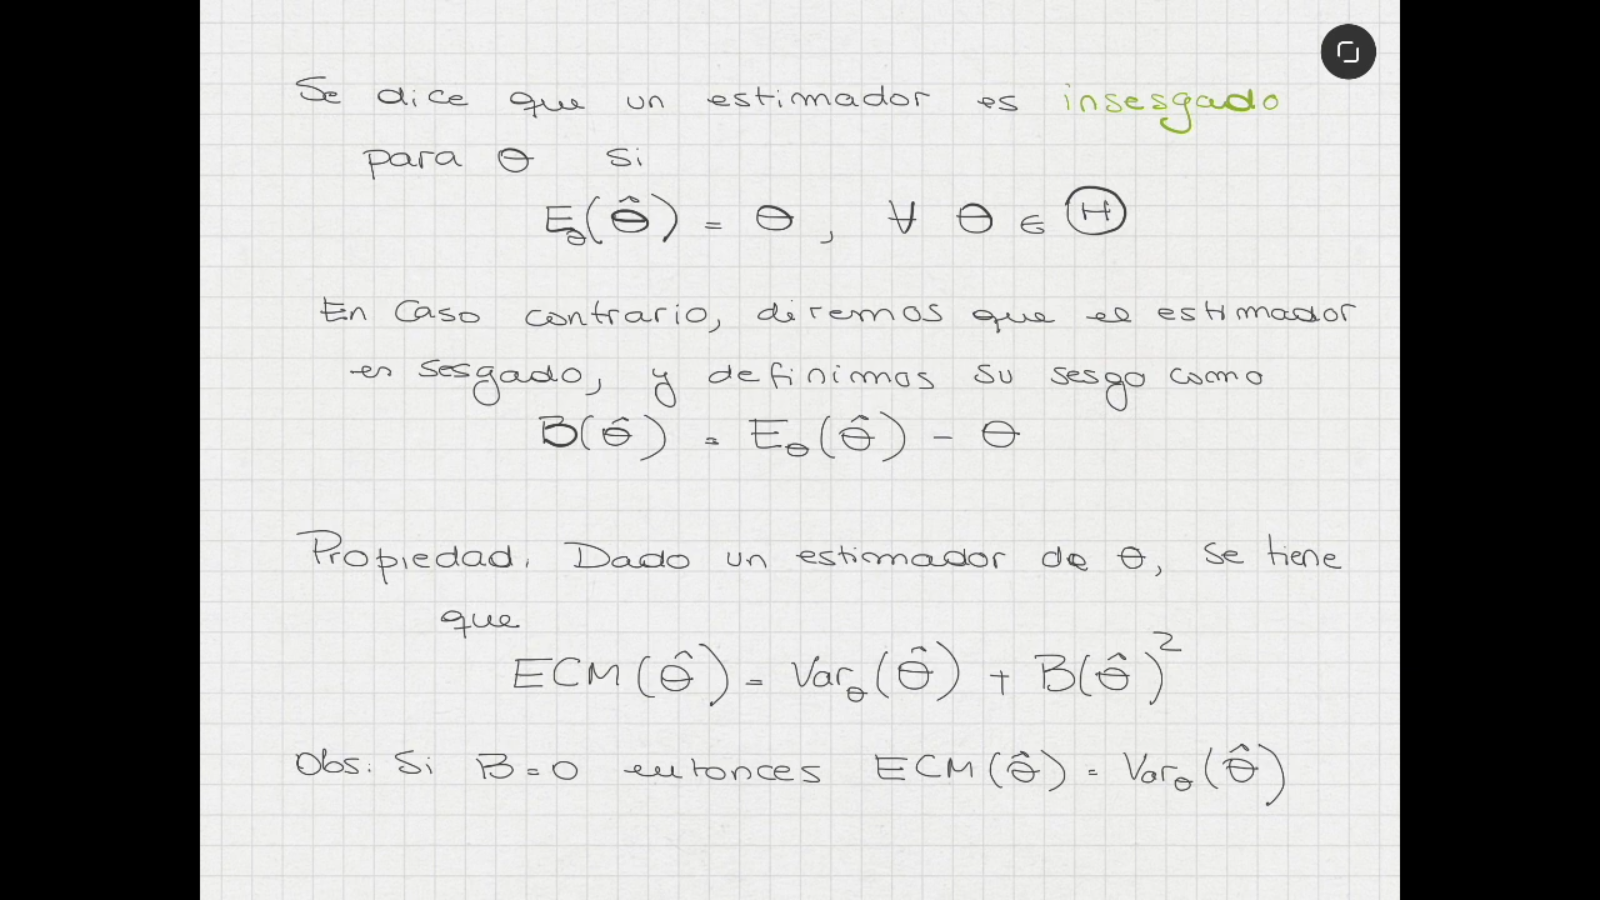 Se dice que un estimador es insesgado
para θ si
E_θ(θ̂) = θ, ∀ θ ∈ Θ
En caso contrario, diremos que el estimador
es sesgado, y definimos su sesgo como
B(θ̂) = E_θ(θ̂) - θ
Propiedad. Dado un estimador de θ, se tiene
que
ECM(θ̂) = Var_θ(θ̂) + B(θ̂)²
Obs: Si B=0 entonces ECM(θ̂) = Var_θ(θ̂)